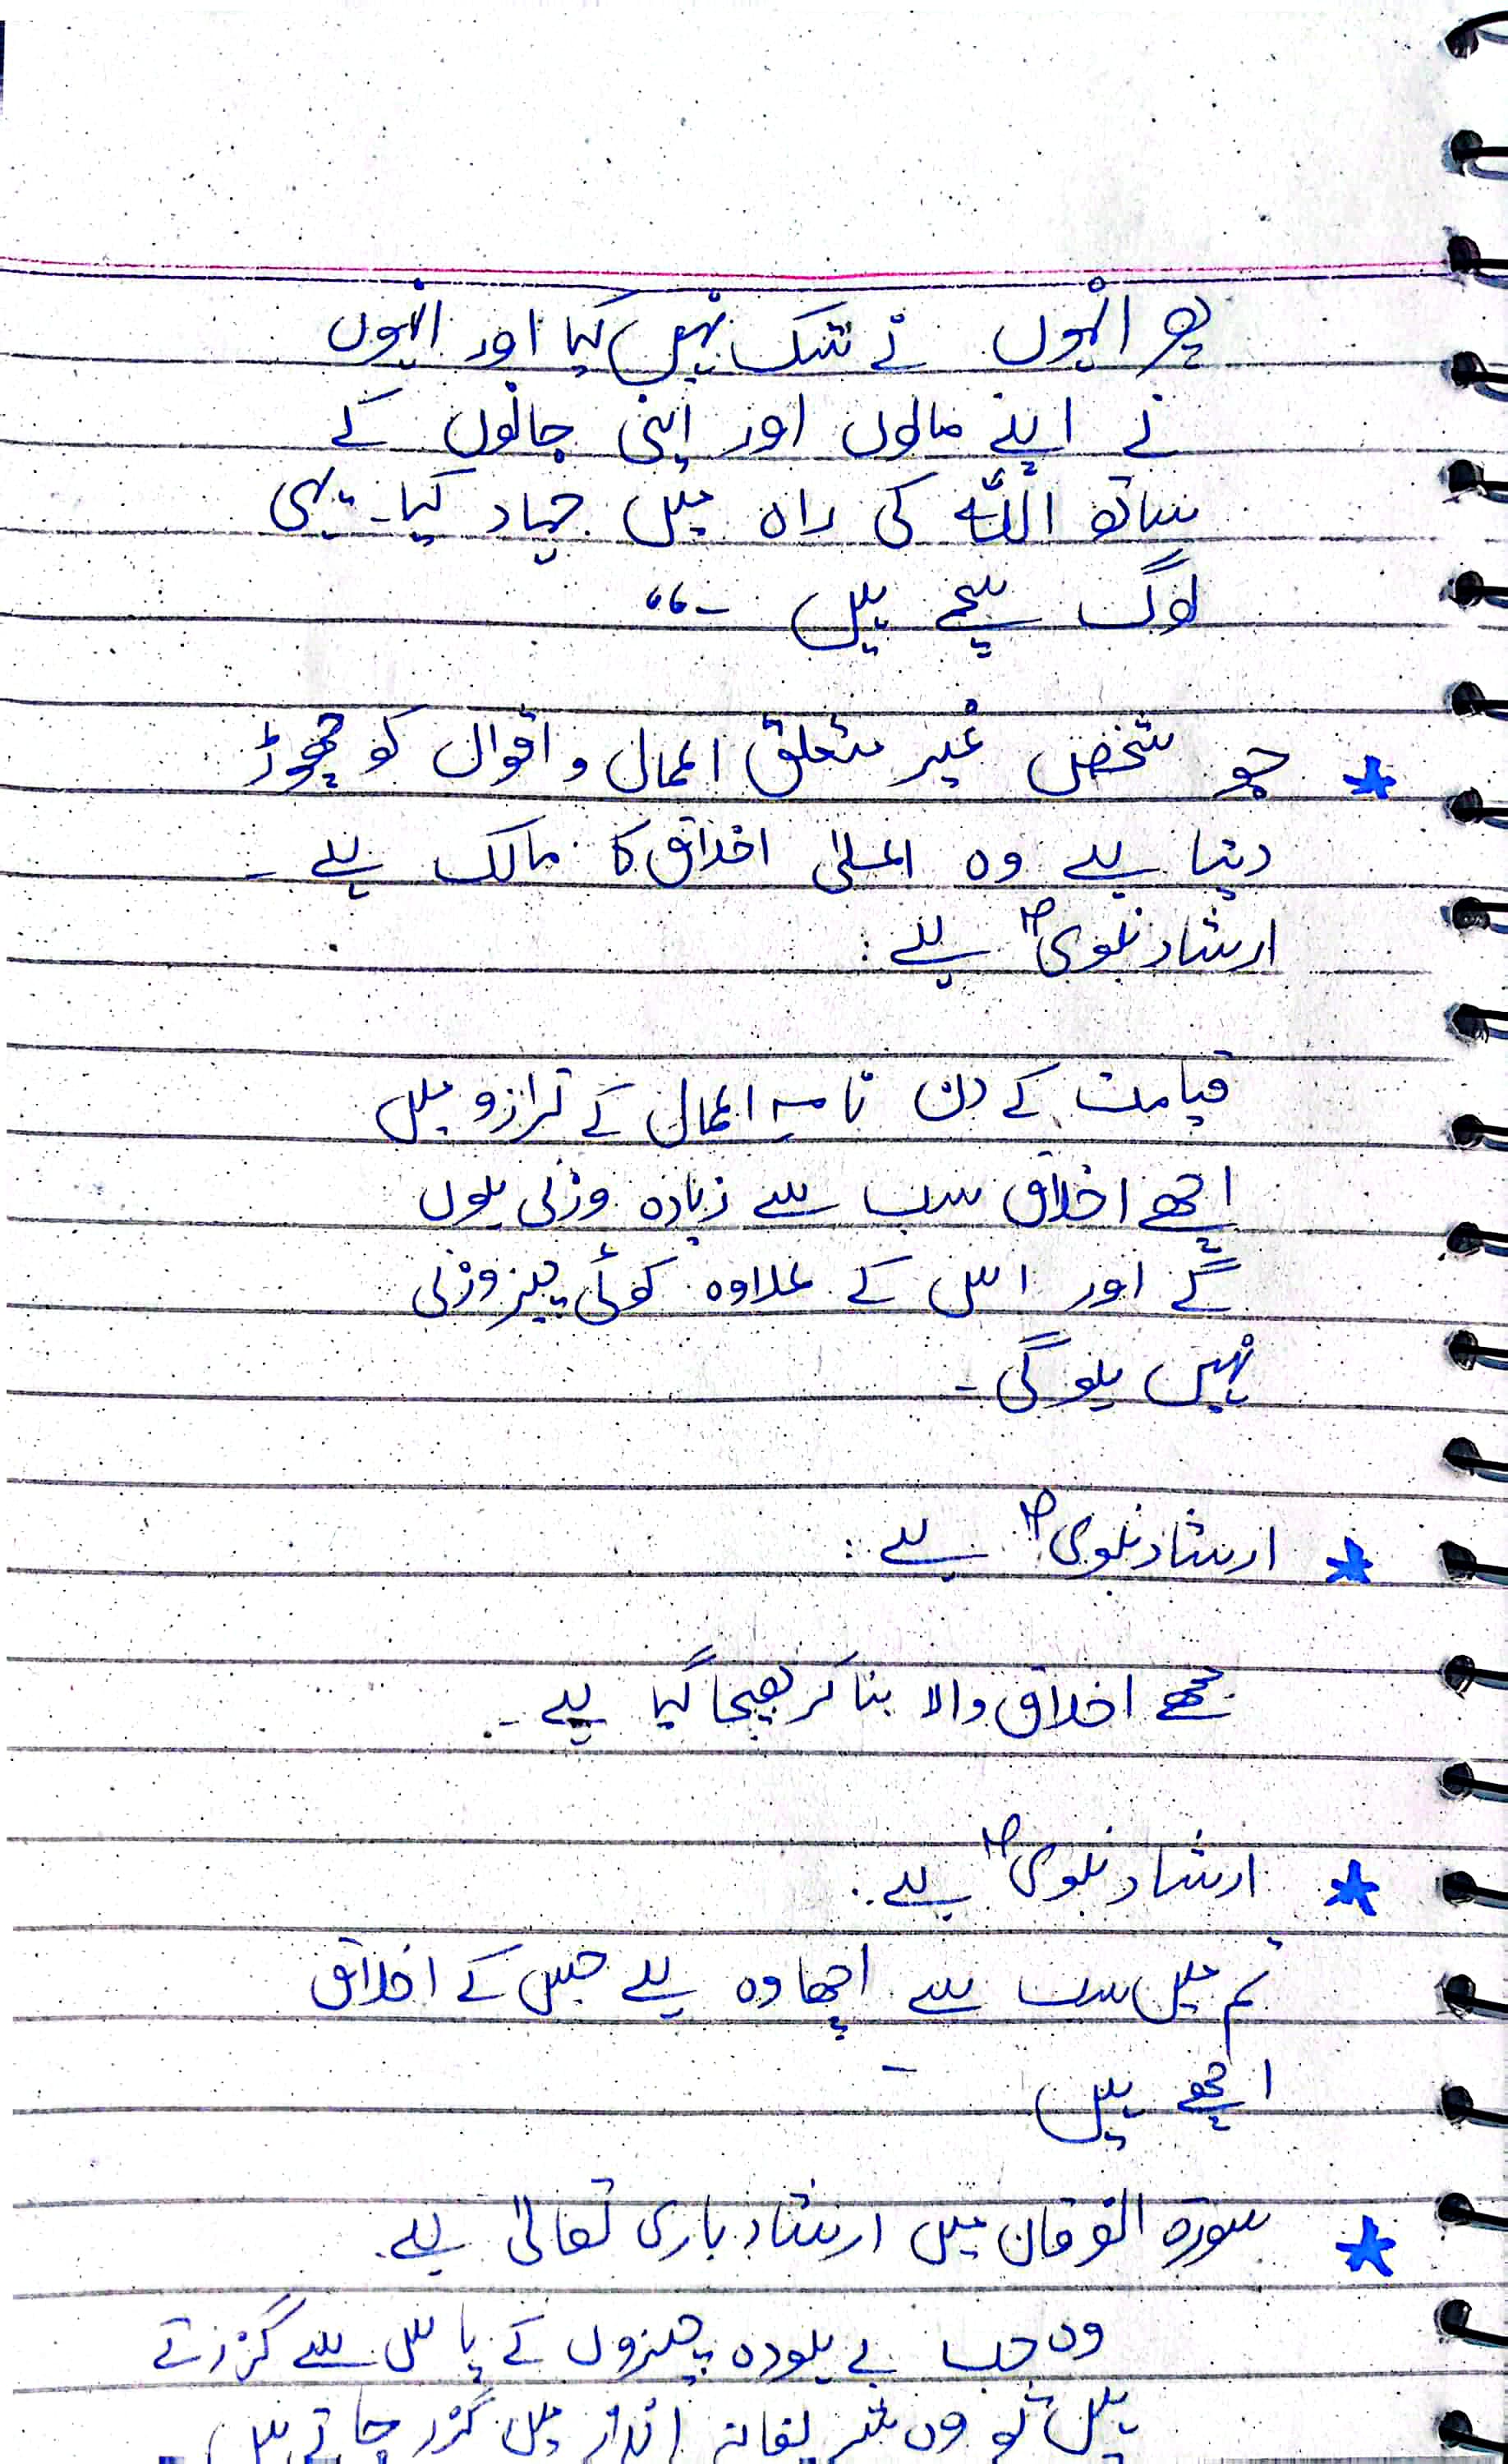 پھر انہوں نے شک نہیں کیا اور انہوں
نے اپنے مالوں اور اپنی جانوں کے
ساتھ اللہ کی راہ میں جہاد کیا۔ یہی
لوگ سچے ہیں ۔“
* جو شخص غیر متعلق اعمال و اقوال کو چھوڑ
دیتا ہے وہ اعلیٰ اخلاق کا مالک ہے ۔
ارشاد نبویؐ ہے :
قیامت کے دن نامہ اعمال کے ترازو میں
اچھے اخلاق سب سے زیادہ وزنی ہوں
گے اور اس کے علاوہ کوئی چیز وزنی
نہیں ہوگی ۔
* ارشاد نبویؐ ہے :
مجھے اخلاق والا بنا کر بھیجا گیا ہے ۔
* ارشاد نبویؐ ہے :
تم میں سب سے اچھا وہ ہے جس کے اخلاق
اچھے ہیں ۔
* سورۃ الفرقان میں ارشاد باری تعالیٰ ہے :
وہ جب بے ہودہ چیزوں کے پاس سے گزرتے
ہیں تو وہ شریفانہ انداز میں گزر جاتے ہیں ۔